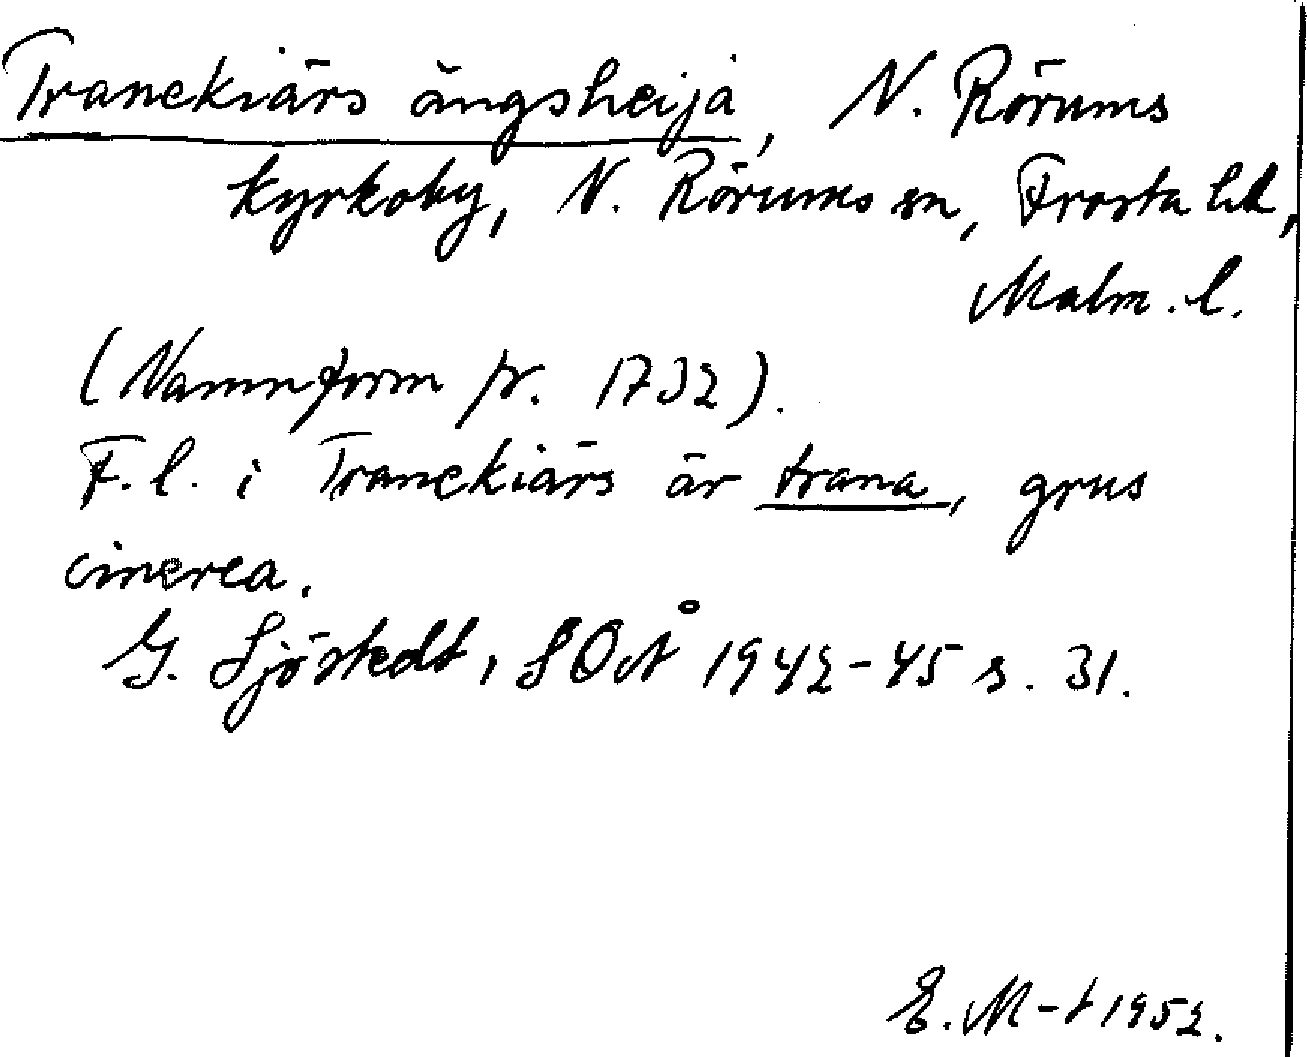 Tranekiärs ängsheija, N. Rörums
kyrkoby, N. Rörums sn, Frosta hd,
Malm. l.
(Namnform fr. 1732).
F. l. i Tranekiärs är trana, grus
cinerea.
G. Sjöstedt, SOÅ 1942-45 s. 31.
E. M-t 1952.